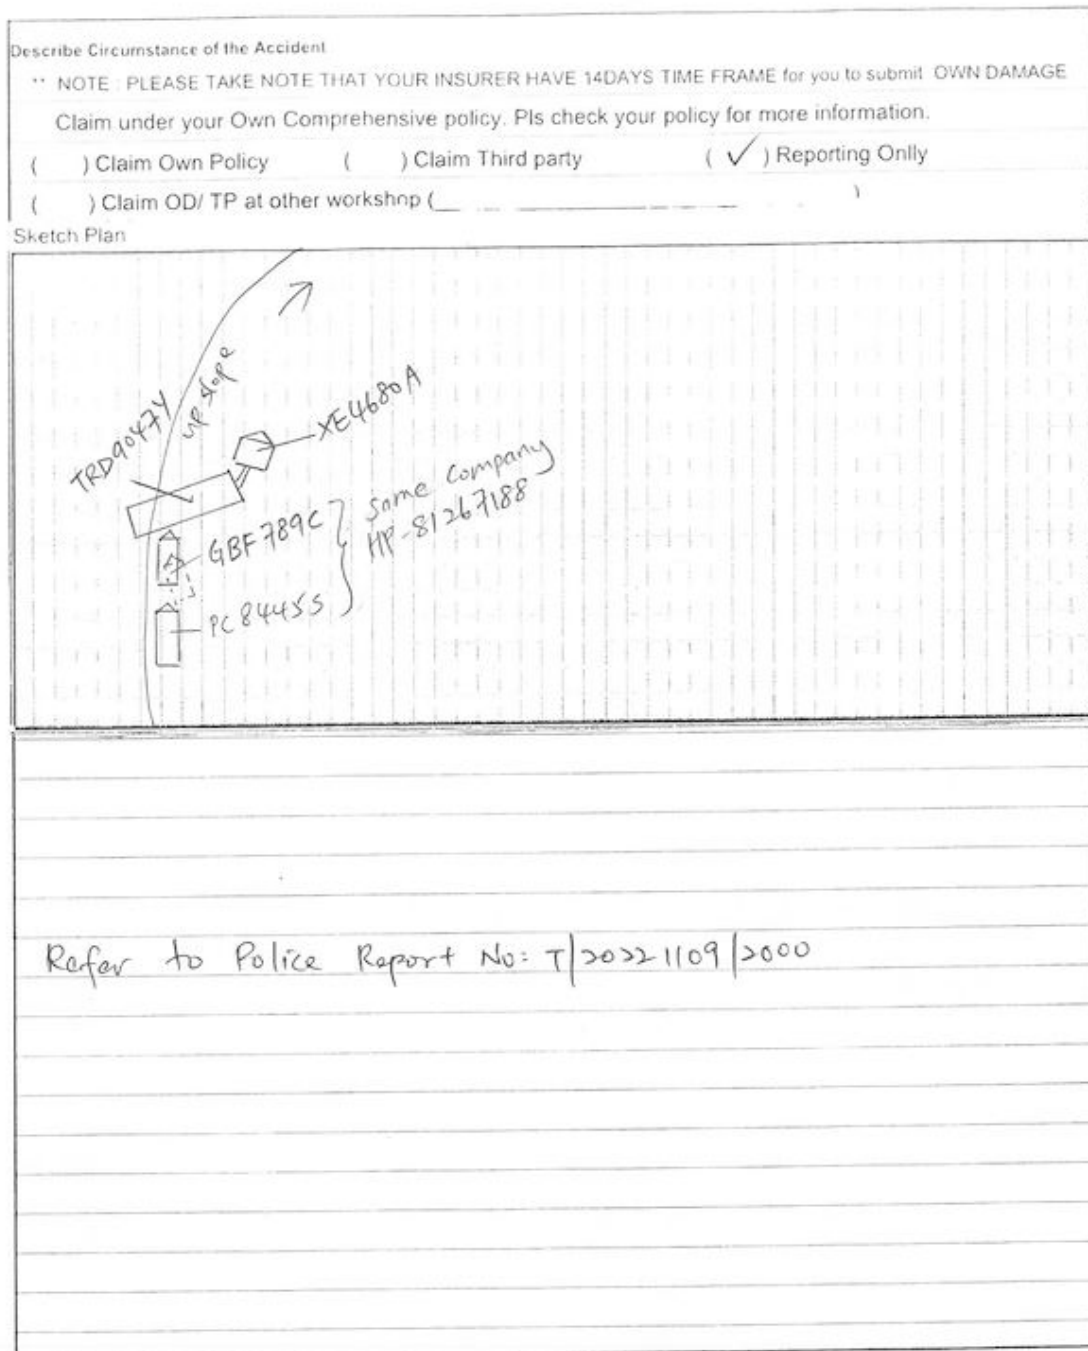 Describe Circumstance of the Accident
** NOTE : PLEASE TAKE NOTE THAT YOUR INSURER HAVE 14DAYS TIME FRAME for you to submit OWN DAMAGE
Claim under your Own Comprehensive policy. Pls check your policy for more information.
( ) Claim Own Policy ( ) Claim Third party ( ✓ ) Reporting Onlly
( ) Claim OD/ TP at other workshop (_______________)
Sketch Plan
TRD9047Y
up slope
XE4680A
GBF789C
PC8445S
same company
HP-81267188
Refer to Police Report No: T/20221109/2000